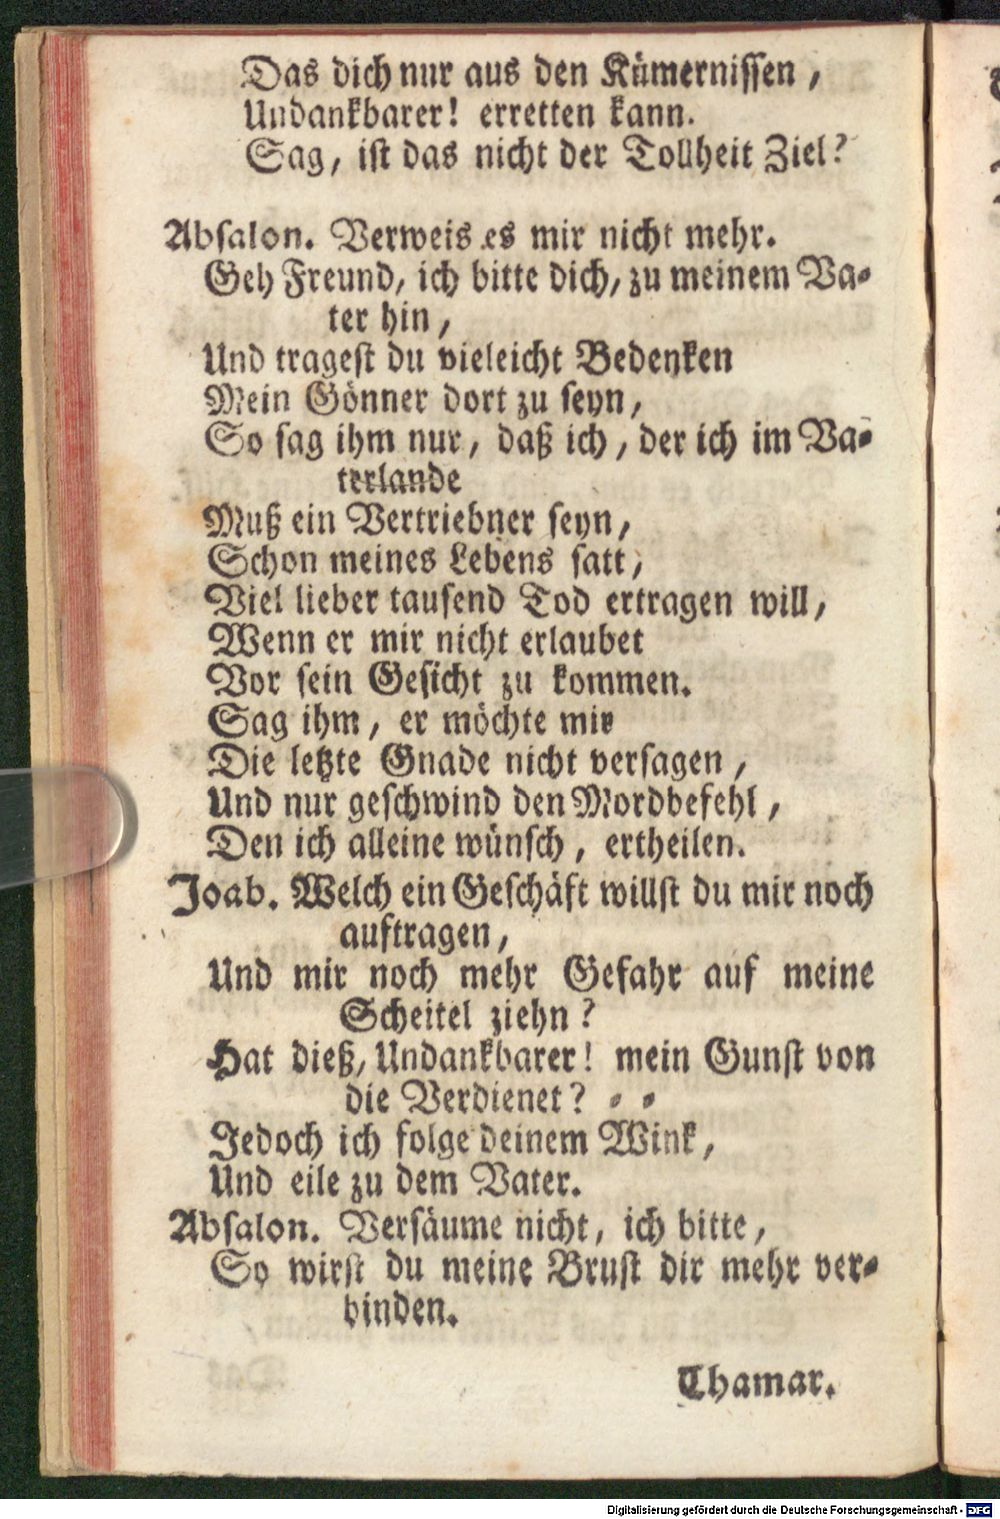 Das dich nur aus den Kümernissen,
Undankbarer! erretten kann.
Sag, ist das nicht der Tollheit Ziel?
Absalon. Verweis es mir nicht mehr.
Geh Freund, ich bitte dich, zu meinem Va-
ter hin,
Und tragest du vieleicht Bedenken
Mein Gönner dort zu seyn,
So sag ihm nur, daß ich, der ich im Va-
terlande
Muß ein Vertriebner seyn,
Schon meines Lebens satt,
Viel lieber tausend Tod ertragen will,
Wenn er mir nicht erlaubet
Vor sein Gesicht zu kommen.
Sag ihm, er möchte mir
Die letzte Gnade nicht versagen,
Und nur geschwind den Mordbefehl,
Den ich alleine wünsch, ertheilen.
Joab. Welch ein Geschäft willst du mir noch
auftragen,
Und mir noch mehr Gefahr auf meine
Scheitel ziehn?
Hat dieß, Undankbarer! mein Gunst von
die Verdienet? - -
Jedoch ich folge deinem Wink,
Und eile zu dem Vater.
Absalon. Versäume nicht, ich bitte,
So wirst du meine Brust dir mehr ver-
binden.
Thamar.
Digitalisierung gefördert durch die Deutsche Forschungsgemeinschaft - DFG